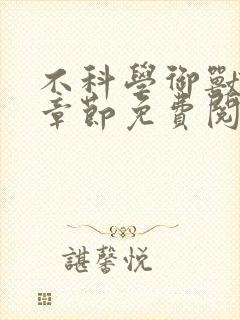 不科學御獸
章節免費閱
諶馨悦